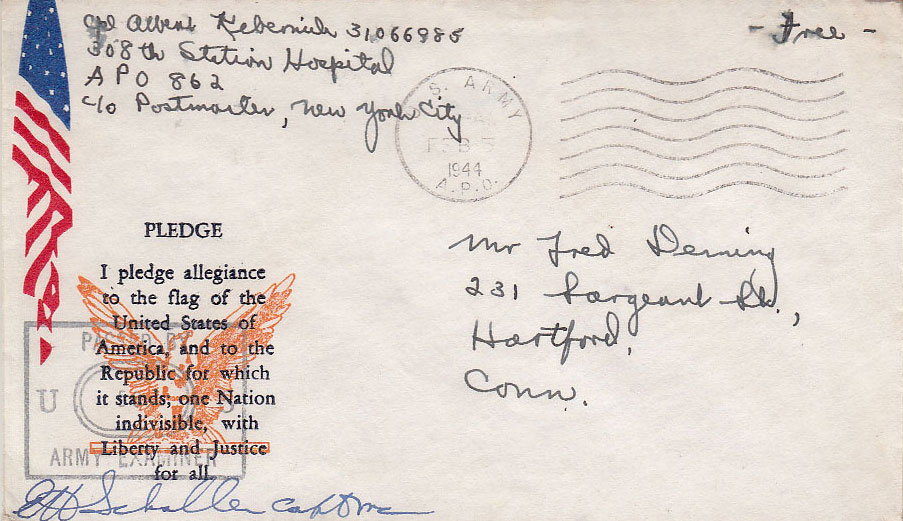 Cpl Albert Kebernich 31066985
308th Station Hospital
APO 862
c/o Postmaster, New York City
- Free -
S. ARMY
FEB 5
1944
A.P.O.
Mr Fred Deming
231 Sargeant St.,
Hartford,
Conn.
PLEDGE
I pledge allegiance
to the flag of the
United States of
America, and to the
Republic for which
it stands; one Nation
indivisible, with
Liberty and Justice
for all.
PASSED BY
U S
ARMY EXAMINER
Schaller Capt MC